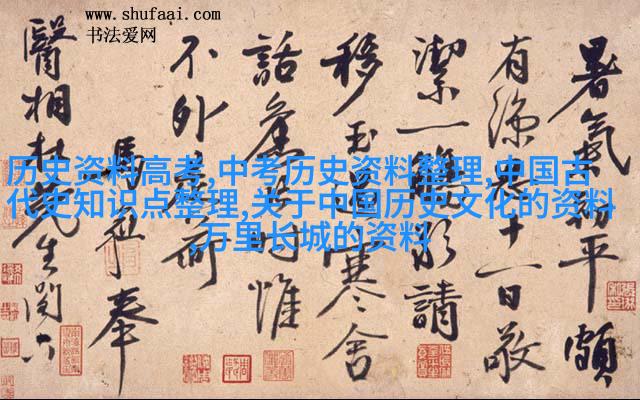 www.shufaai.com
书法爱网
历史资料高考,中考历史资料整理,中国古
代史知识点整理,关于中国历史文化的资料
,万里长城的资料
暑氣初平頗
有涼 十一日敬
潔一觴 請
移玉過寒舍
話舊 時惟
不外 荷
馬 奉
醫相杜 先生閣下